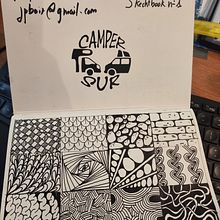 Sketchbook n°1
jpboir@gmail.com
CAMPER
DUR